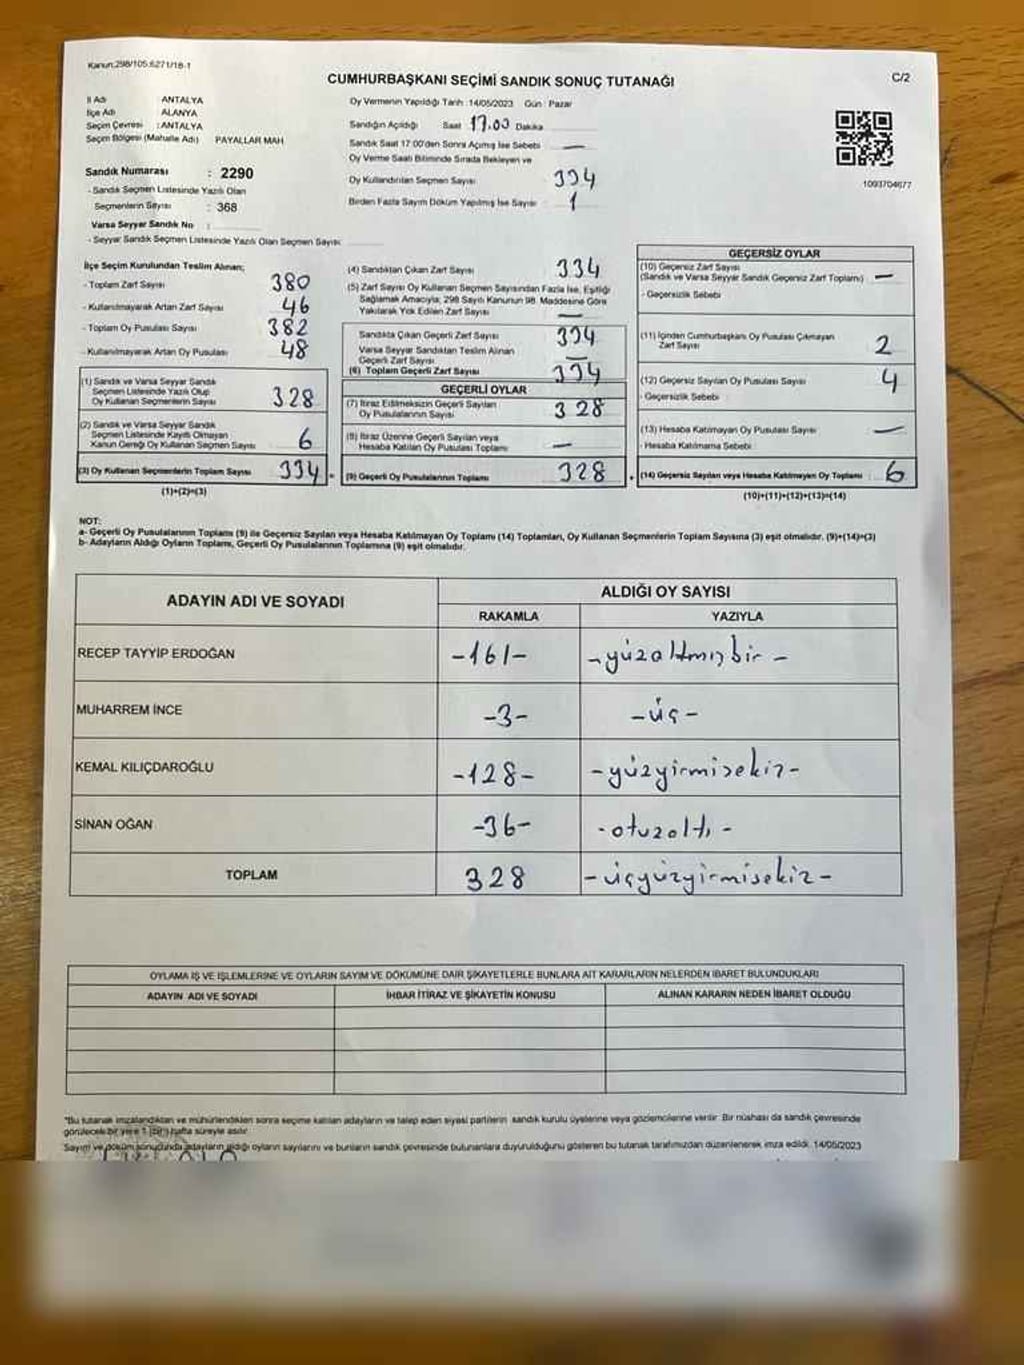 Kanun:298/105,6271/18-1
CUMHURBAŞKANI SEÇİMİ SANDIK SONUÇ TUTANAĞI
C/2
İl Adı : ANTALYA
İlçe Adı : ALANYA
Seçim Çevresi : ANTALYA
Seçim Bölgesi (Mahalle Adı) PAYALLAR MAH
Sandık Numarası : 2290
- Sandık Seçmen Listesinde Yazılı Olan
Seçmenlerin Sayısı : 368
Varsa Seyyar Sandık No :
- Seyyar Sandık Seçmen Listesinde Yazılı Olan Seçmen Sayısı:
Oy Vermenin Yapıldığı Tarih :14/05/2023 Gün : Pazar
Sandığın Açıldığı Saat 17.00 Dakika
Sandık Saat 17:00'den Sonra Açılmış İse Sebebi : —
Oy Verme Saati Bitiminde Sırada Bekleyen ve
Oy Kullandırılan Seçmen Sayısı 334
Birden Fazla Sayım Döküm Yapılmış İse Sayısı : 1
1093704677
İlçe Seçim Kurulundan Teslim Alınan;
- Toplam Zarf Sayısı 380
- Kullanılmayarak Artan Zarf Sayısı 46
- Toplam Oy Pusulası Sayısı 382
- Kullanılmayarak Artan Oy Pusulası 48
(1) Sandık ve Varsa Seyyar Sandık
Seçmen Listesinde Yazılı Olup
Oy Kullanan Seçmenlerin Sayısı 328
(2) Sandık ve Varsa Seyyar Sandık
Seçmen Listesinde Kayıtlı Olmayan
Kanun Gereği Oy Kullanan Seçmen Sayısı 6
(3) Oy Kullanan Seçmenlerin Toplam Sayısı 334
(1)+(2)=(3)
(4) Sandıktan Çıkan Zarf Sayısı 334
(5) Zarf Sayısı Oy Kullanan Seçmen Sayısından Fazla İse, Eşitliği
Sağlamak Amacıyla; 298 Sayılı Kanunun 98. Maddesine Göre
Yakılarak Yok Edilen Zarf Sayısı —
Sandıkta Çıkan Geçerli Zarf Sayısı 334
Varsa Seyyar Sandıktan Teslim Alınan
Geçerli Zarf Sayısı —
(6) Toplam Geçerli Zarf Sayısı 334
GEÇERLİ OYLAR
(7) İtiraz Edilmeksizin Geçerli Sayılan
Oy Pusulalarının Sayısı 328
(8) İtiraz Üzerine Geçerli Sayılan veya
Hesaba Katılan Oy Pusulası Toplamı —
(9) Geçerli Oy Pusulalarının Toplamı 328
GEÇERSİZ OYLAR
(10) Geçersiz Zarf Sayısı
(Sandık ve Varsa Seyyar Sandık Geçersiz Zarf Toplamı) —
- Geçersizlik Sebebi
(11) İçinden Cumhurbaşkanı Oy Pusulası Çıkmayan
Zarf Sayısı 2
(12) Geçersiz Sayılan Oy Pusulası Sayısı 4
- Geçersizlik Sebebi
(13) Hesaba Katılmayan Oy Pusulası Sayısı —
- Hesaba Katılmama Sebebi :
(14) Geçersiz Sayılan veya Hesaba Katılmayan Oy Toplamı : 6
(10)+(11)+(12)+(13)=(14)
NOT:
a- Geçerli Oy Pusulalarının Toplamı (9) ile Geçersiz Sayılan veya Hesaba Katılmayan Oy Toplamı (14) Toplamları, Oy Kullanan Seçmenlerin Toplam Sayısına (3) eşit olmalıdır. (9)+(14)=(3)
b- Adayların Aldığı Oyların Toplamı, Geçerli Oy Pusulalarının Toplamına (9) eşit olmalıdır.
ADAYIN ADI VE SOYADI ALDIĞI OY SAYISI
RAKAMLA YAZIYLA
RECEP TAYYİP ERDOĞAN -161- -yüzaltmışbir-
MUHARREM İNCE -3- -üç-
KEMAL KILIÇDAROĞLU -128- -yüzyirmisekiz-
SİNAN OĞAN -36- -otuzaltı-
TOPLAM 328 -üçyüzyirmisekiz-
OYLAMA İŞ VE İŞLEMLERİNE VE OYLARIN SAYIM VE DÖKÜMÜNE DAİR ŞİKAYETLERLE BUNLARA AİT KARARLARIN NELERDEN İBARET BULUNDUKLARI
ADAYIN ADI VE SOYADI İHBAR İTİRAZ VE ŞİKAYETİN KONUSU ALINAN KARARIN NEDEN İBARET OLDUĞU
*Bu tutanak imzalandıktan ve mühürlendikten sonra seçime katılan adayların ve talep eden siyasi partilerin sandık kurulu üyelerine veya gözlemcilerine verilir. Bir nüshası da sandık çevresinde
görülecek bir yere 1 (bir) hafta süreyle asılır.
Sayım ve döküm sonucunda adayların aldığı oyların sayılarını ve bunların sandık çevresinde bulunanlara duyurulduğunu gösteren bu tutanak tarafımızdan düzenlenerek imza edildi. 14/05/2023